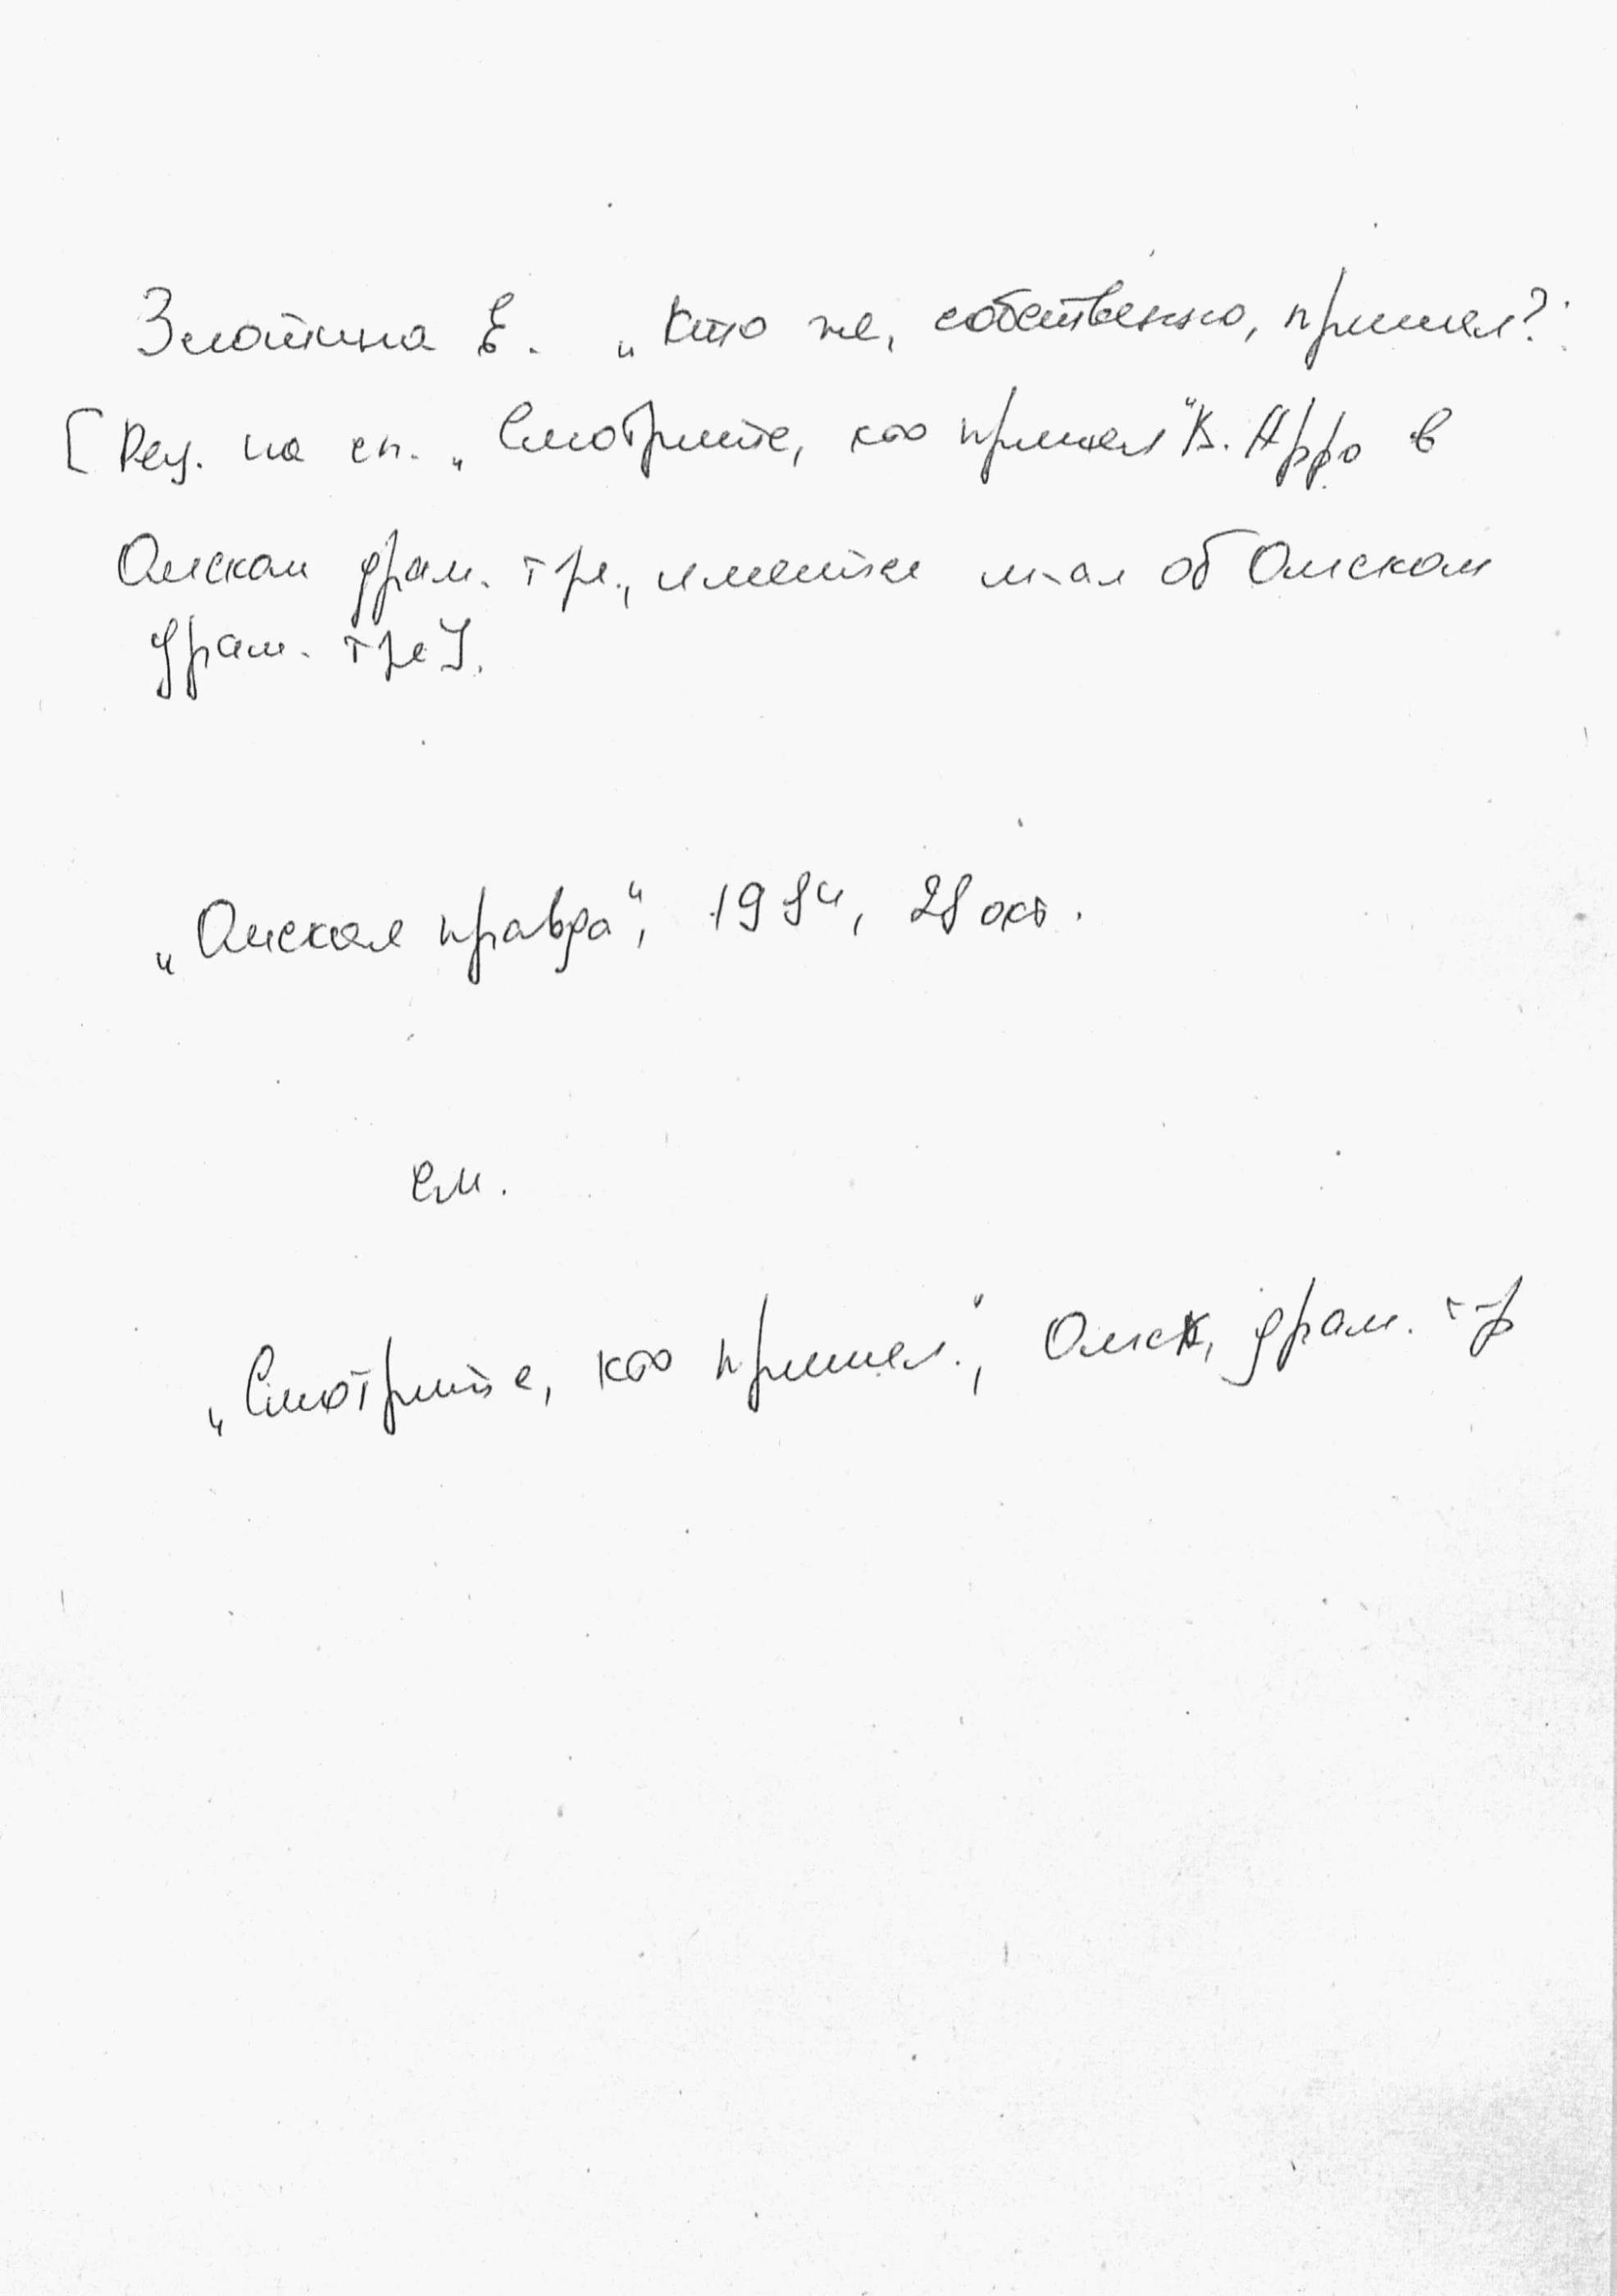 Злотина Е. „Кто же, собственно, пришел?"
[Рец. на сп. „Смотрите, кто пришел" В. Арро в
Омском драм. т-ре, имеется м-ал об Омском
драм. т-ре].
„Омская правда", 1984, 28 окт.
см.
„Смотрите, кто пришел", Омск, драм. т-р